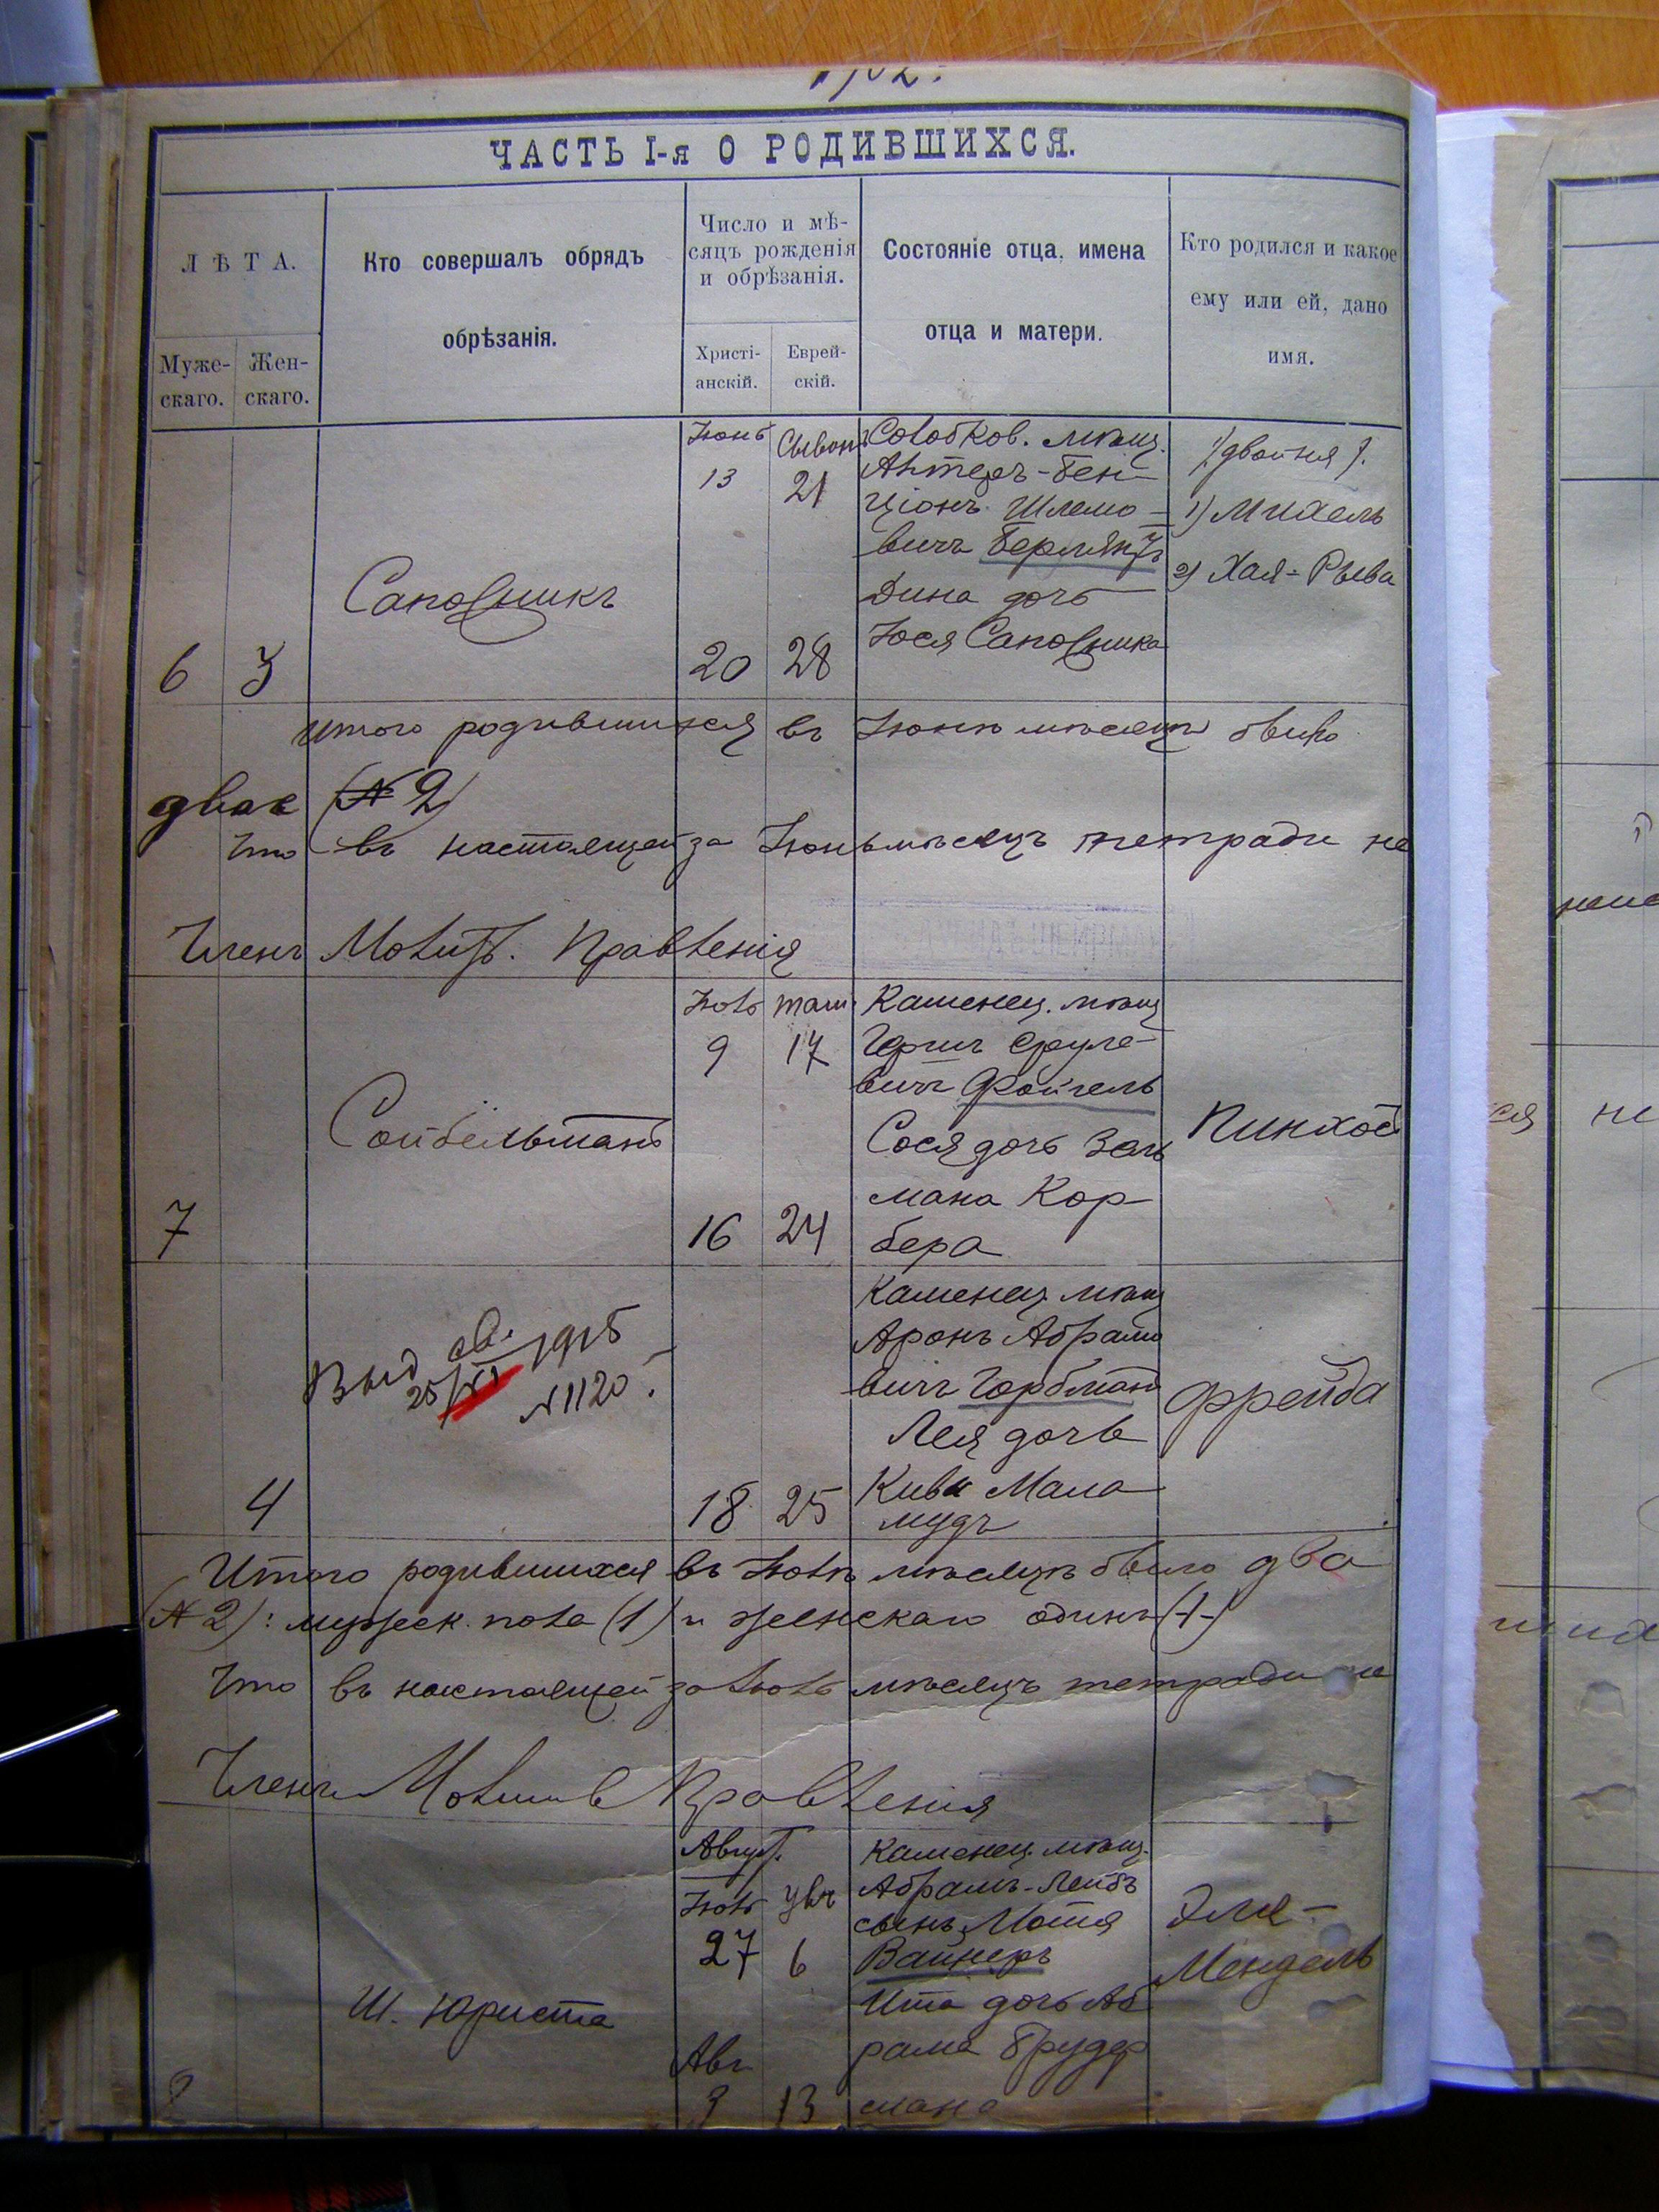 1902.
ЧАСТЬ I-я О РОДИВШИХСЯ.
ЛѢТА.
Муже-
скаго.
Жен-
скаго.
Кто совершалъ обрядъ
обрѣзанія.
Число и мѣ-
сяцъ рожденія
и обрѣзанія.
Христі-
анскій.
Еврей-
скій.
Состояніе отца, имена
отца и матери.
Кто родился и какое
ему или ей, дано
имя.
6 3
Сапожникъ
Іюнь
13
20
Сывонъ
21
28
мѣщ.
-Бен-
ціонъ Шлемо-
вичъ
Дина дочь
Іося Сапожника
/двойня/.
1) Михель
2) Хая-Рыва
Итого родившихся въ Іюнѣ мѣсяцѣ было
двое (№ 2)
Что въ настоящей за Іюнь мѣсяцъ тетради не
Членъ Молитв. Правленія
7
Сойбельманъ
Іюль
9
16
Там.
17
24
Каменец. мѣщ
Гершъ Сруле-
вичъ Фойгель
Сося дочь Заль
мана Кор-
бера
Пинхос
4
Выд. св.
25/XI 1915
№ 1120.
18 25
Каменец. мѣщ
Аронъ Абрамо
вичъ Горбман
Лея дочь
Киви Мала
мудъ
Фрейда
Итого родившихся въ Іюлѣ мѣсяцѣ было два
(№ 2): мужеск. пола (1) и женскаго одинъ (1)
Что въ настоящей за Іюль мѣсяцъ тетради не
Членъ Молитв Правленія
8
Ш. Юриста
Август.
Іюль
27
Авг
3
Увъ
6
13
Каменец. мѣщ.
Абрамъ-Лейбъ
сынъ Мотя
Вайнеръ
Ита дочь Аб
рама Брудер
мана
Эля-
Мендель